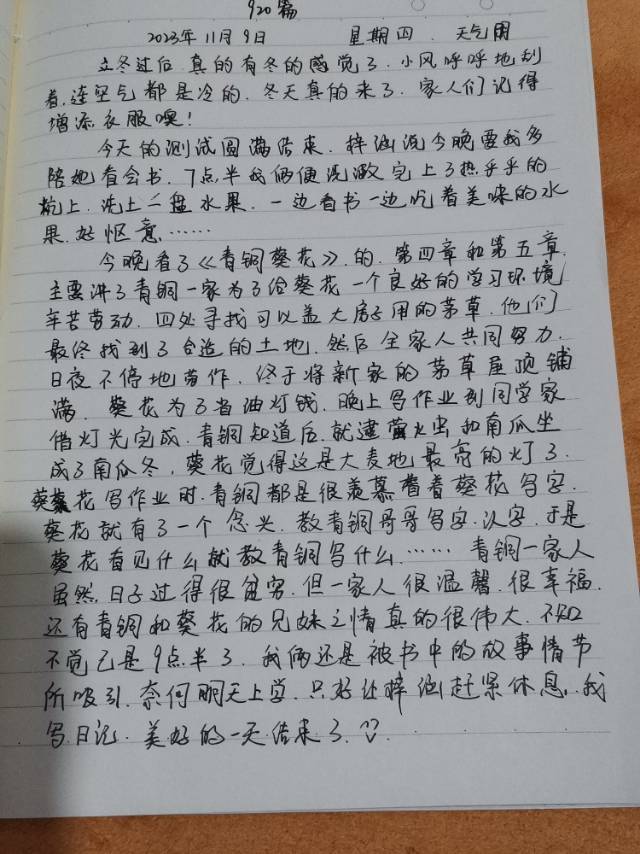 920篇
2023年11月9日 星期四 天气阴
立冬过后,真的有冬的感觉了,小风呼呼地刮
着,连空气都是冷的,冬天真的来了,家人们记得
增添衣服噢!
今天的测试圆满结束,梓涵说今晚要我多
陪她看会书,7点半我俩便洗漱完上了热乎乎的
炕上,洗上一盘水果,一边看书一边吃着美味的水
果,好惬意……
今晚看了《青铜葵花》的,第四章和第五章,
主要讲了青铜一家为了给葵花一个良好的学习环境
辛苦劳动,四处寻找可以盖大房子用的茅草,他们
最终找到了合适的土地,然后全家人共同努力,
日夜不停地劳作,终于将新家的茅草屋顶铺
满,葵花为了省油灯钱,晚上写作业到同学家
借灯光完成,青铜知道后,就逮萤火虫和南瓜坐
成了南瓜冬,葵花觉得这是大麦地最亮的灯了,
葵花写作业时,青铜都是很羡慕看着葵花写字,
葵花就有了一个念头,教青铜哥哥写字,认字,于是
葵花看见什么就教青铜写什么……青铜一家人
虽然日子过得很贫穷,但一家人很温馨,很幸福,
还有青铜和葵花的兄妹之情真的很伟大,不知
不觉已是9点半了,我俩还是被书中的故事情节
所吸引,奈何明天上学,只好让梓涵赶紧休息,我
写日记,美好的一天结束了,